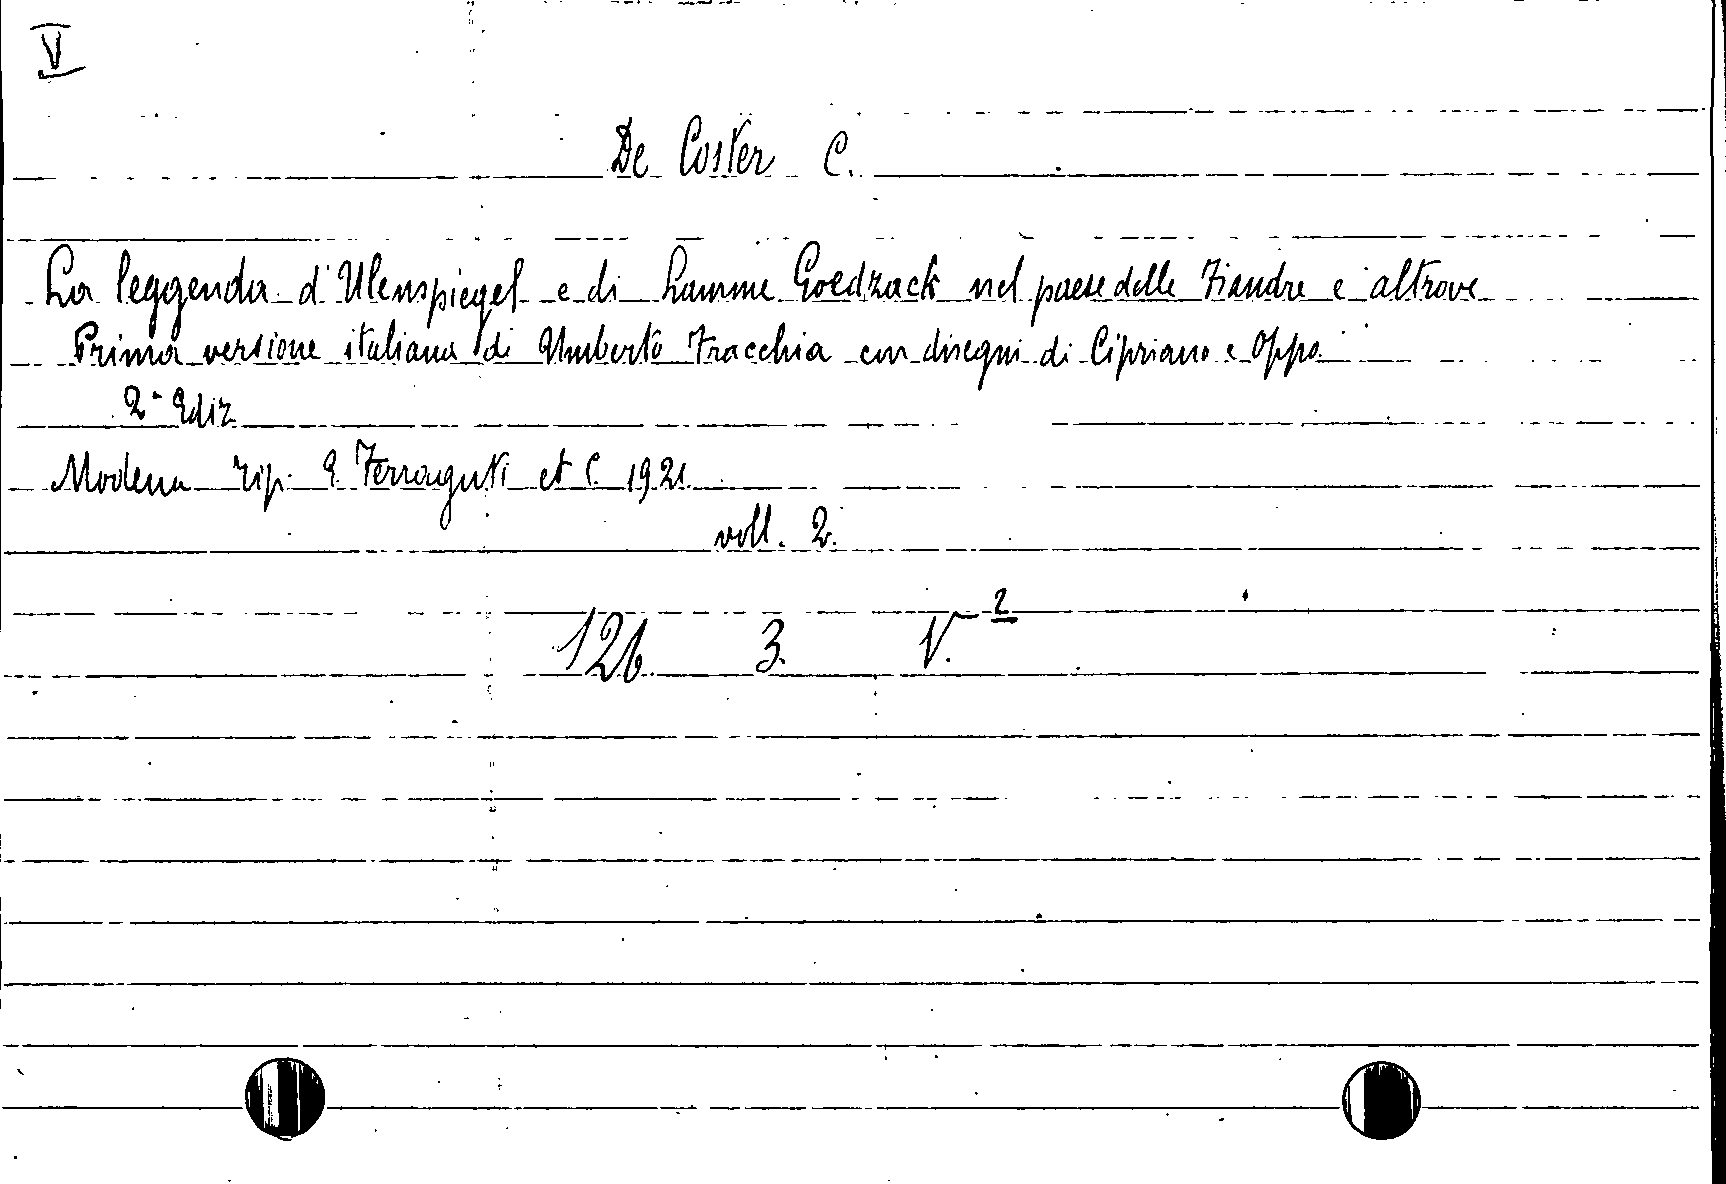 V
De Coster C.
La leggenda d'Ulenspiegel e di Lamme Goedzack nel paese delle Fiandre e altrove
Prima versione italiana di Umberto Fracchia con disegni di Cipriano e Oppo
2ª Ediz
Modena Tip. E. Ferraguti et C. 1921
voll. 2.
126. 3. V. 2